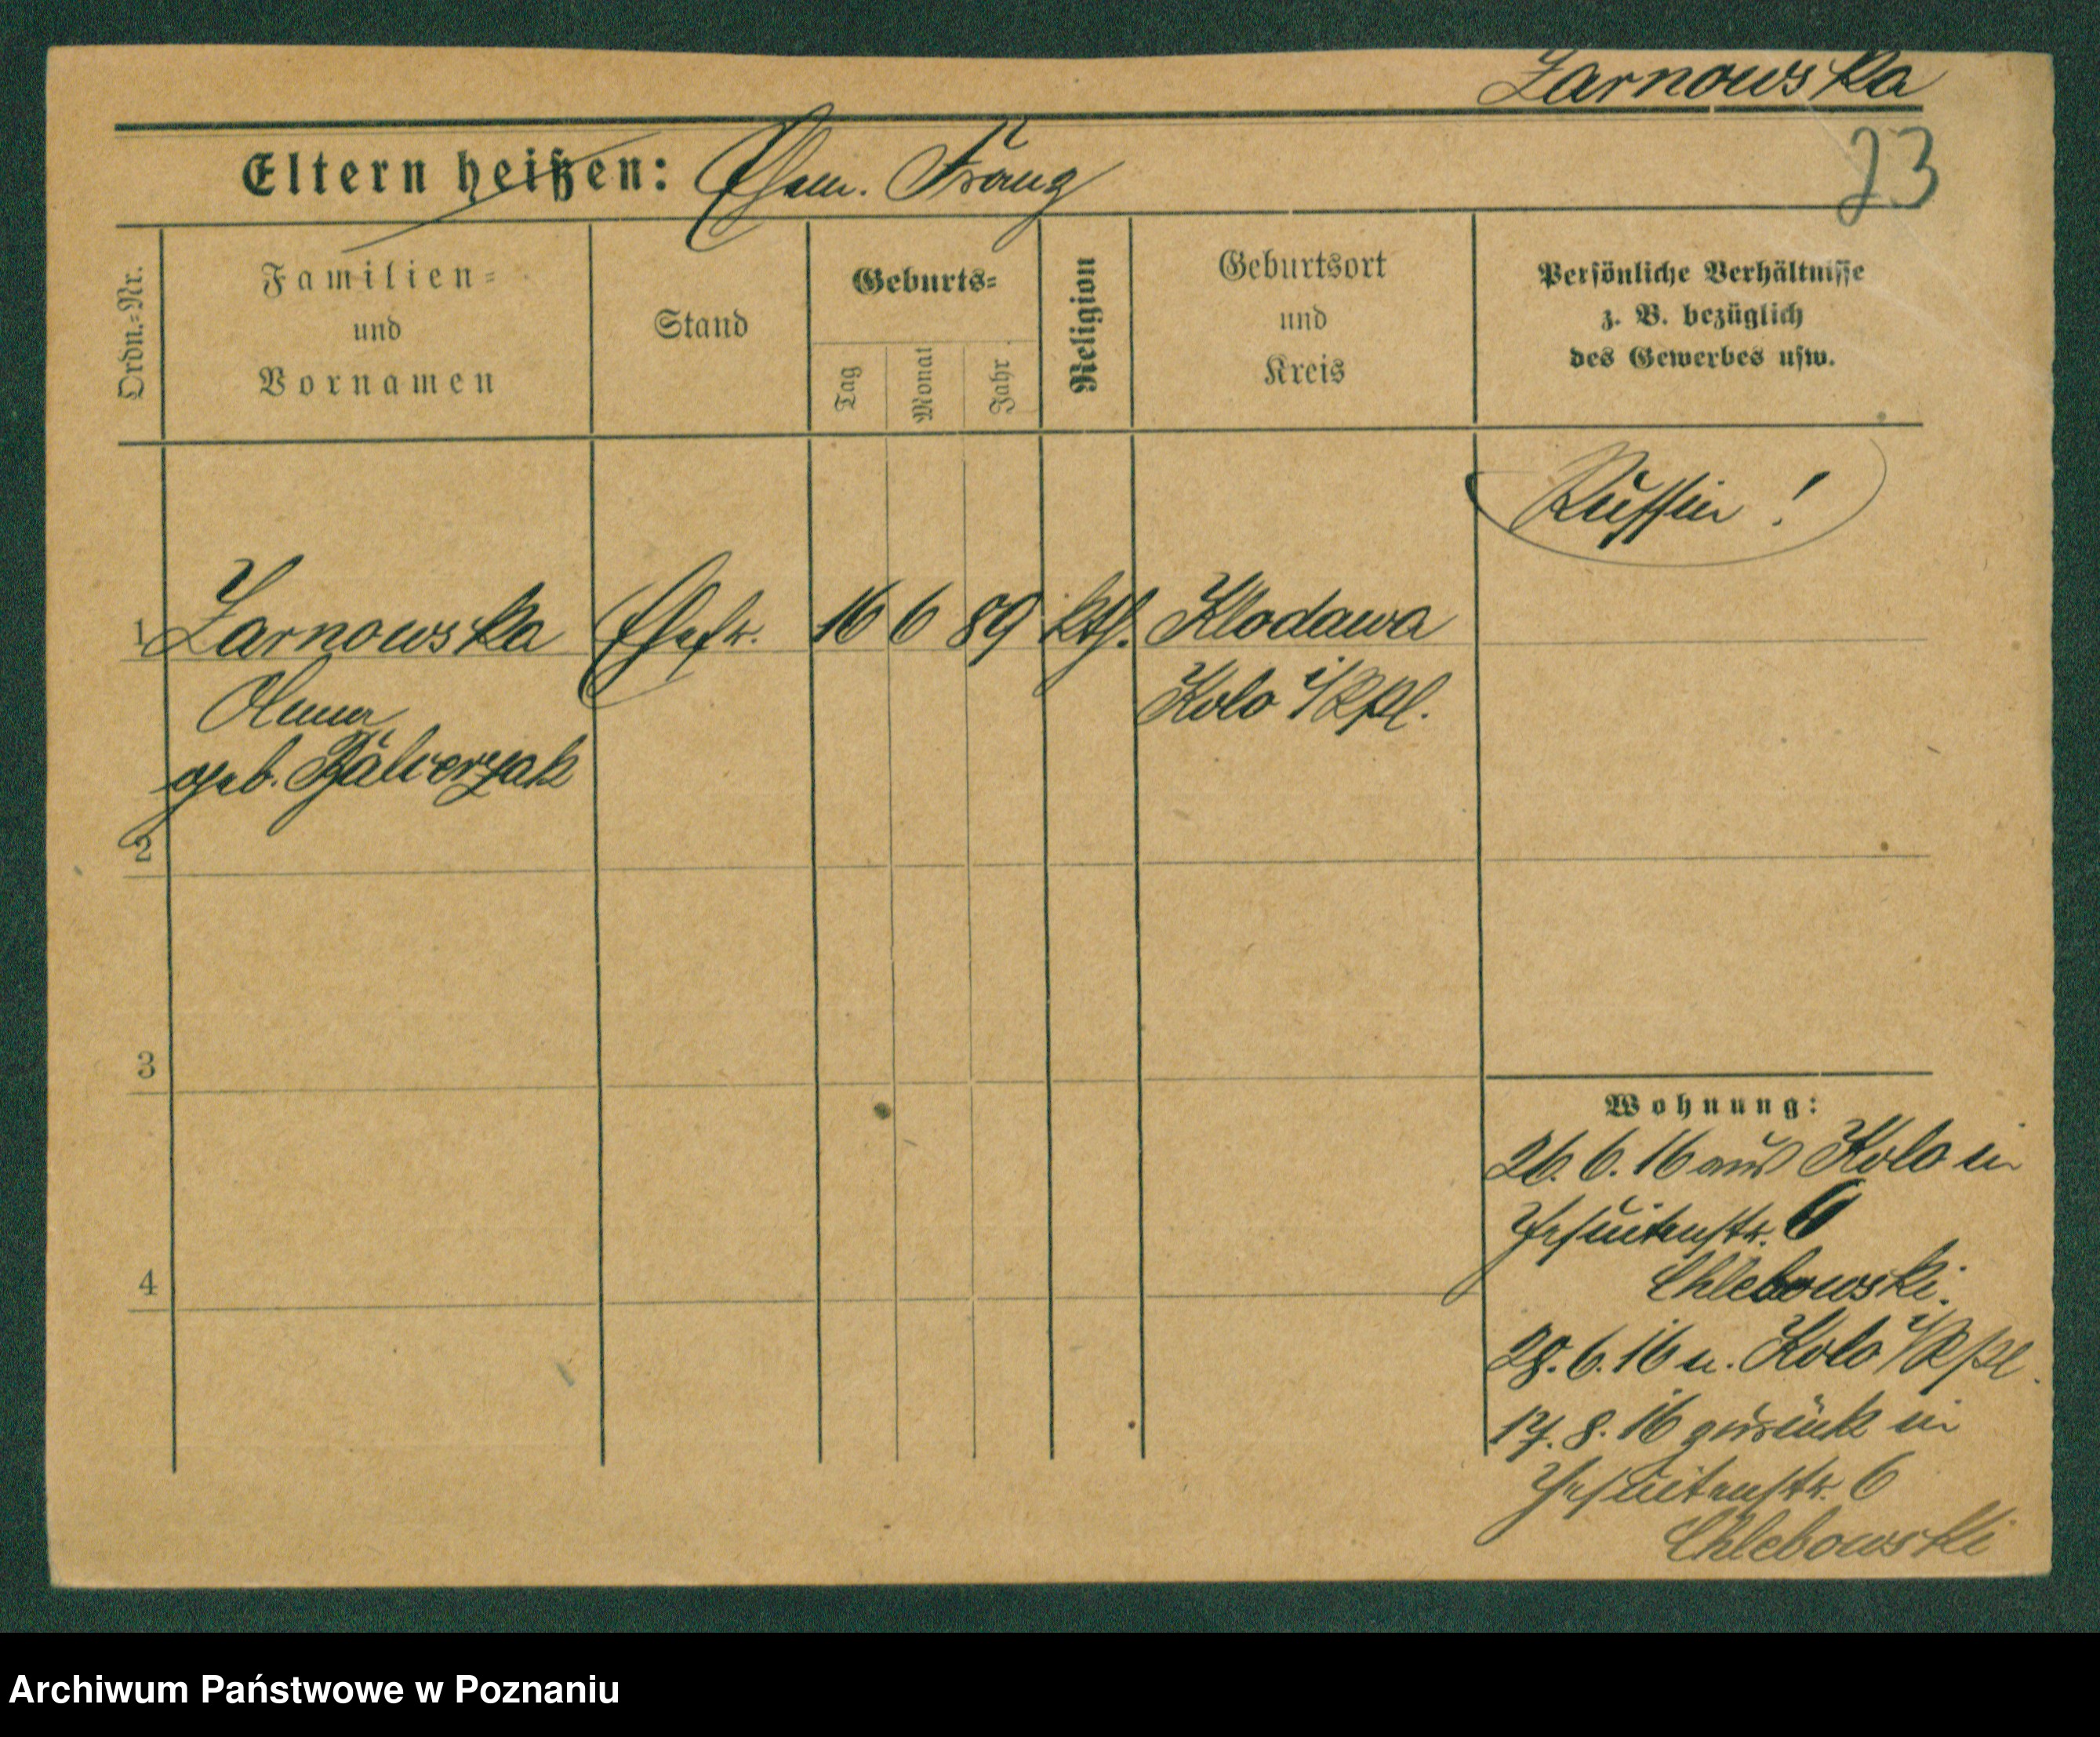 Żarnowska
23
Eltern heißen: Ehem. Franz
Ordn.-Nr.
Familien-
und
Vornamen
Stand
Geburts-
Tag
Monat
Jahr
Religion
Geburtsort
und
Kreis
Persönliche Verhältnisse
z. B. bezüglich
des Gewerbes usw.
Russin!
1 Żarnowska Ehefr. 16 6 89 kth. Klodawa
Anna Kolo i/RPl.
geb.
2
3
4
Wohnung:
26.6.16 aus Kolo in
Jesuitenstr. 6
Chlebowski.
28.6.16 n. Kolo i/RPl.
17.8.16 zurück in
Jesuitenstr. 6
Chlebowski
Archiwum Państwowe w Poznaniu